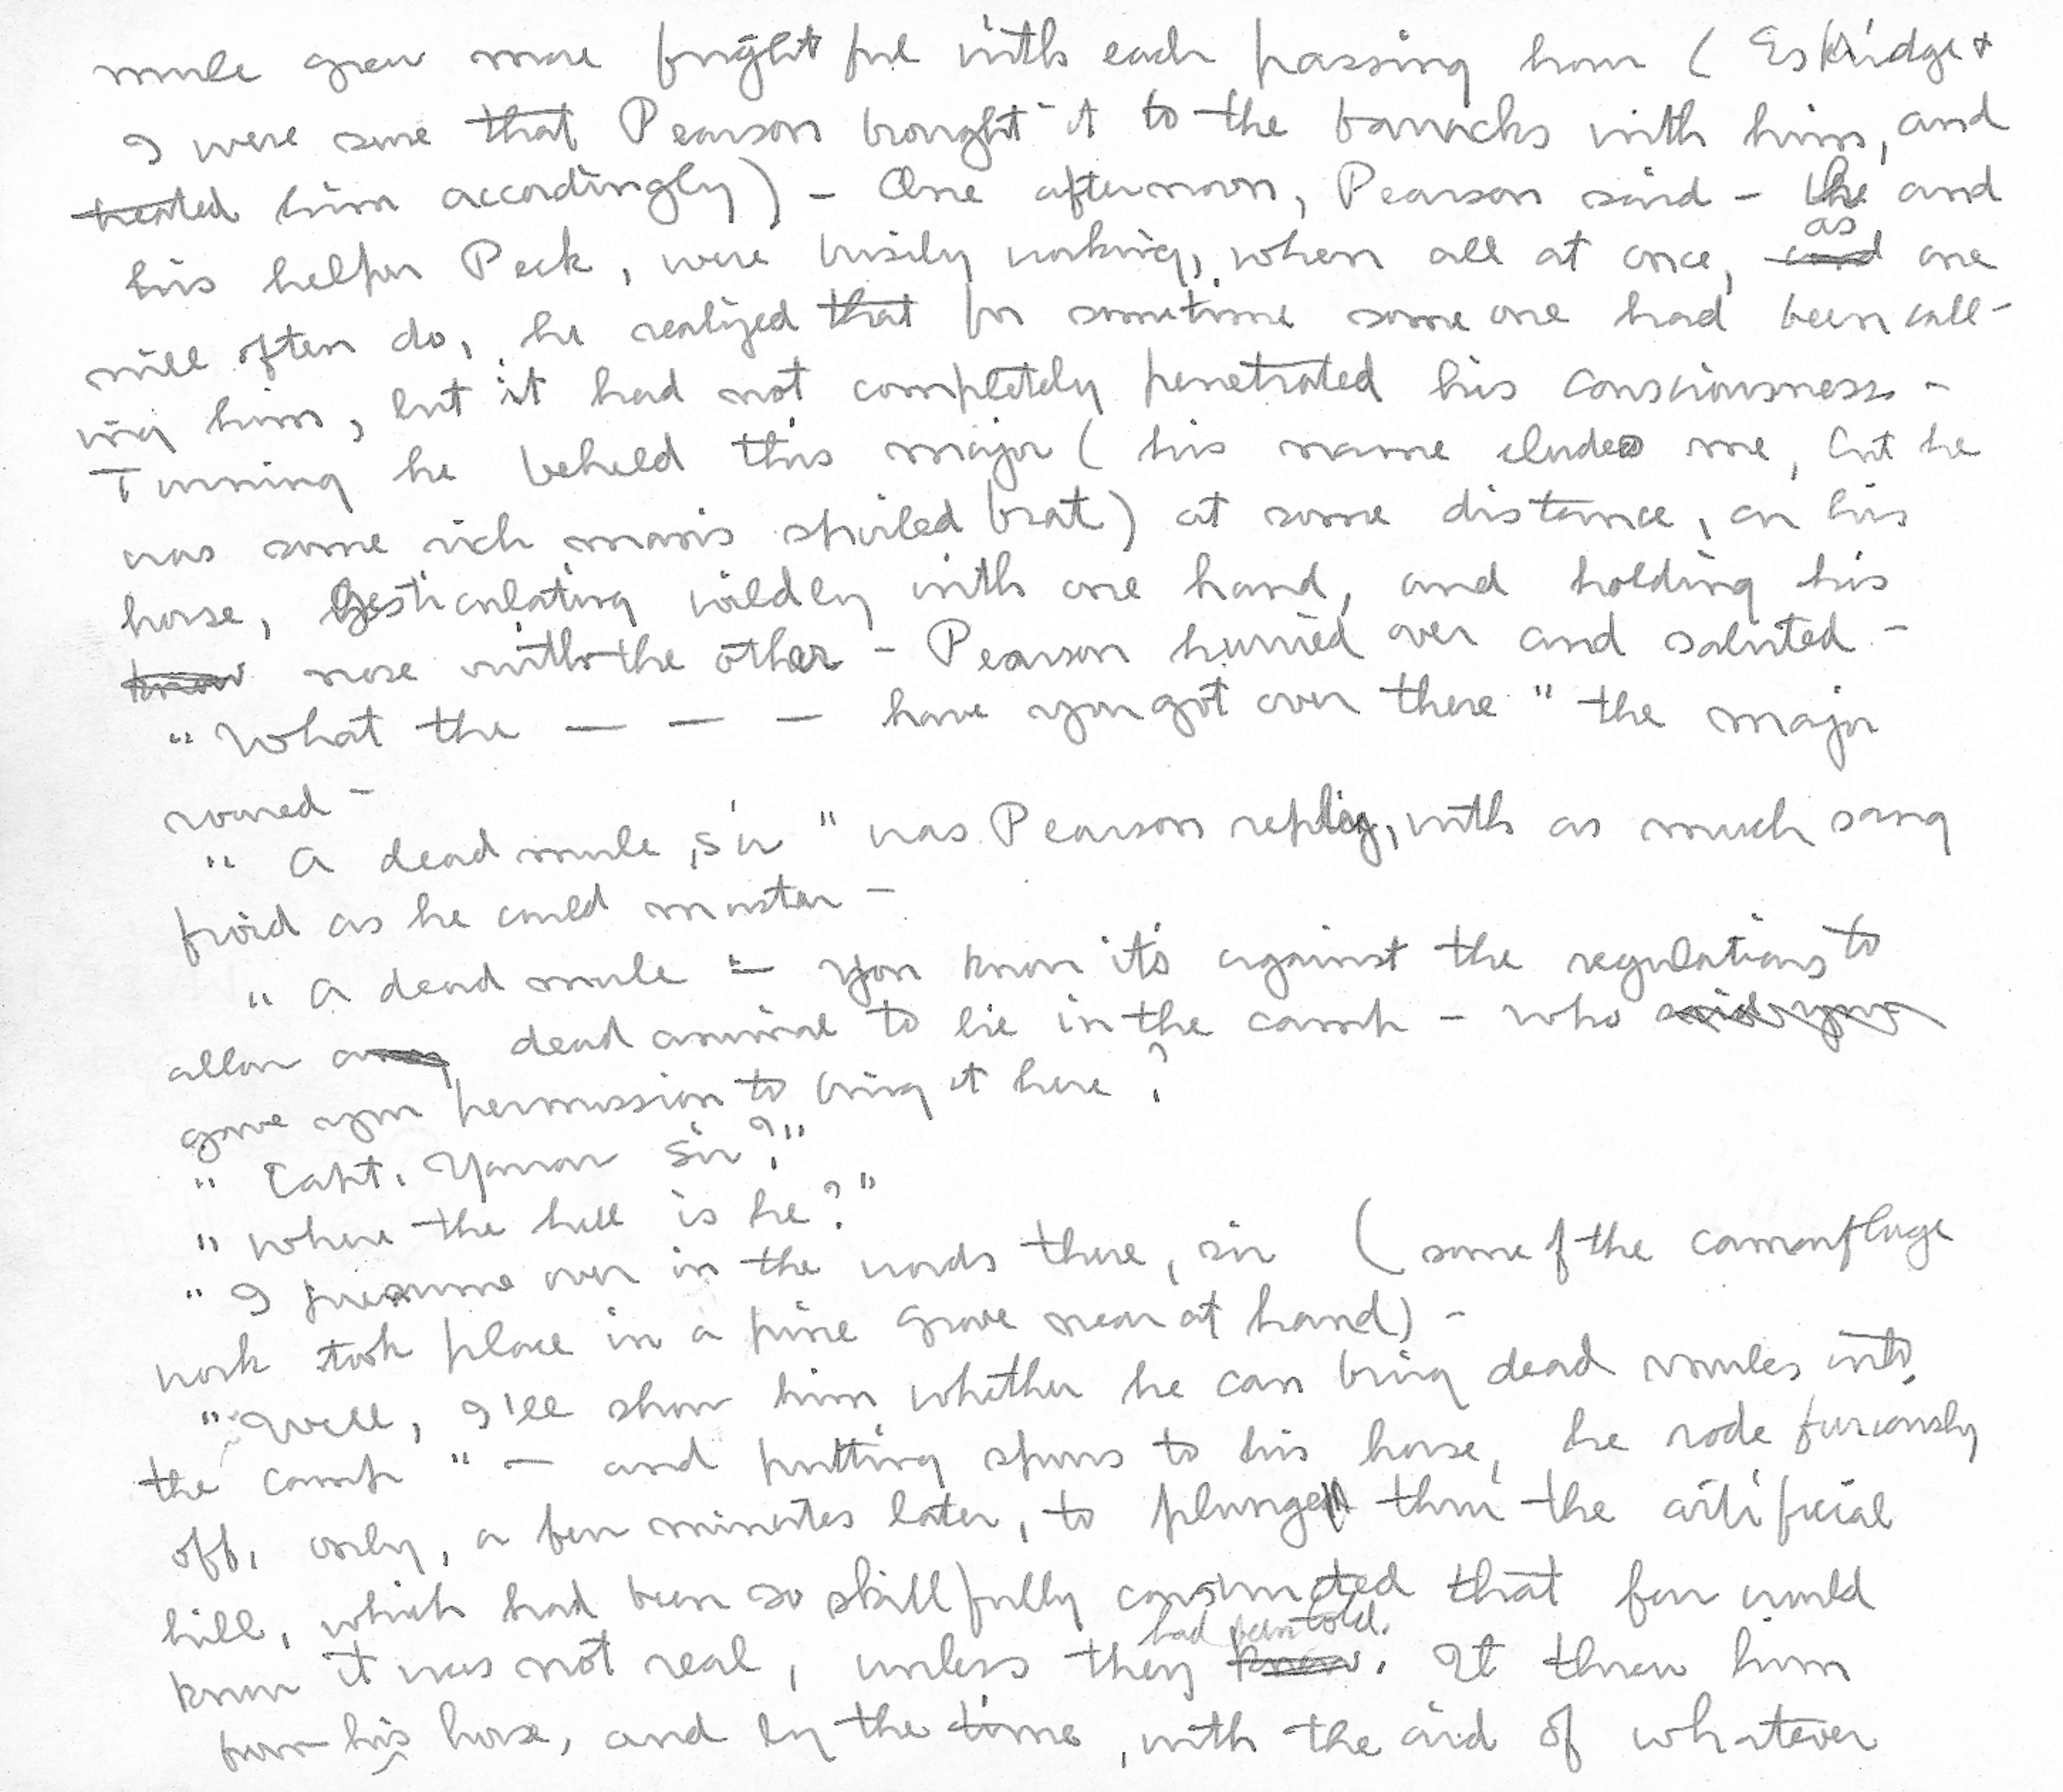 mule grew more frightful with each passing hour ( Eskridge &
I were sure that Pearson brought it to the barracks with him, and
treated him accordingly) - One afternoon, Pearson said - he and
his helper Peck, were busily working, when all at once, as one
will often do, he realized that for sometime some one had been call-
ing him, but it had not completely penetrated his consciousness -
Turning he beheld this major ( his name eludes me, but he
was some rich man's spoiled brat) at some distance, on his
horse, gesticulating wildly with one hand, and holding his
nose with the other - Pearson hurried over and saluted -
"What the — — — have you got over there" the major
roared -
"A dead mule, sir" was Pearson reply, with as much sang
froid as he could muster -
"A dead mule" - you know it's against the regulations to
allow a dead animal to lie in the camp - who
gave you permission to bring it here ?
"Capt. Yarrow sir?"
"Where the hell is he?"
"I presume over in the woods there, sir ( some of the camouflage
work took place in a pine grove near at hand) -
"Well, I'll show him whether he can bring dead mules into
the camp" - and putting spurs to his horse, he rode furiously
off, only, a few minutes later, to plunge thru the artificial
hill, which had been so skillfully constructed that few would
know it was not real, unless they had been told. It threw him
from his horse, and by the time, with the aid of whatever